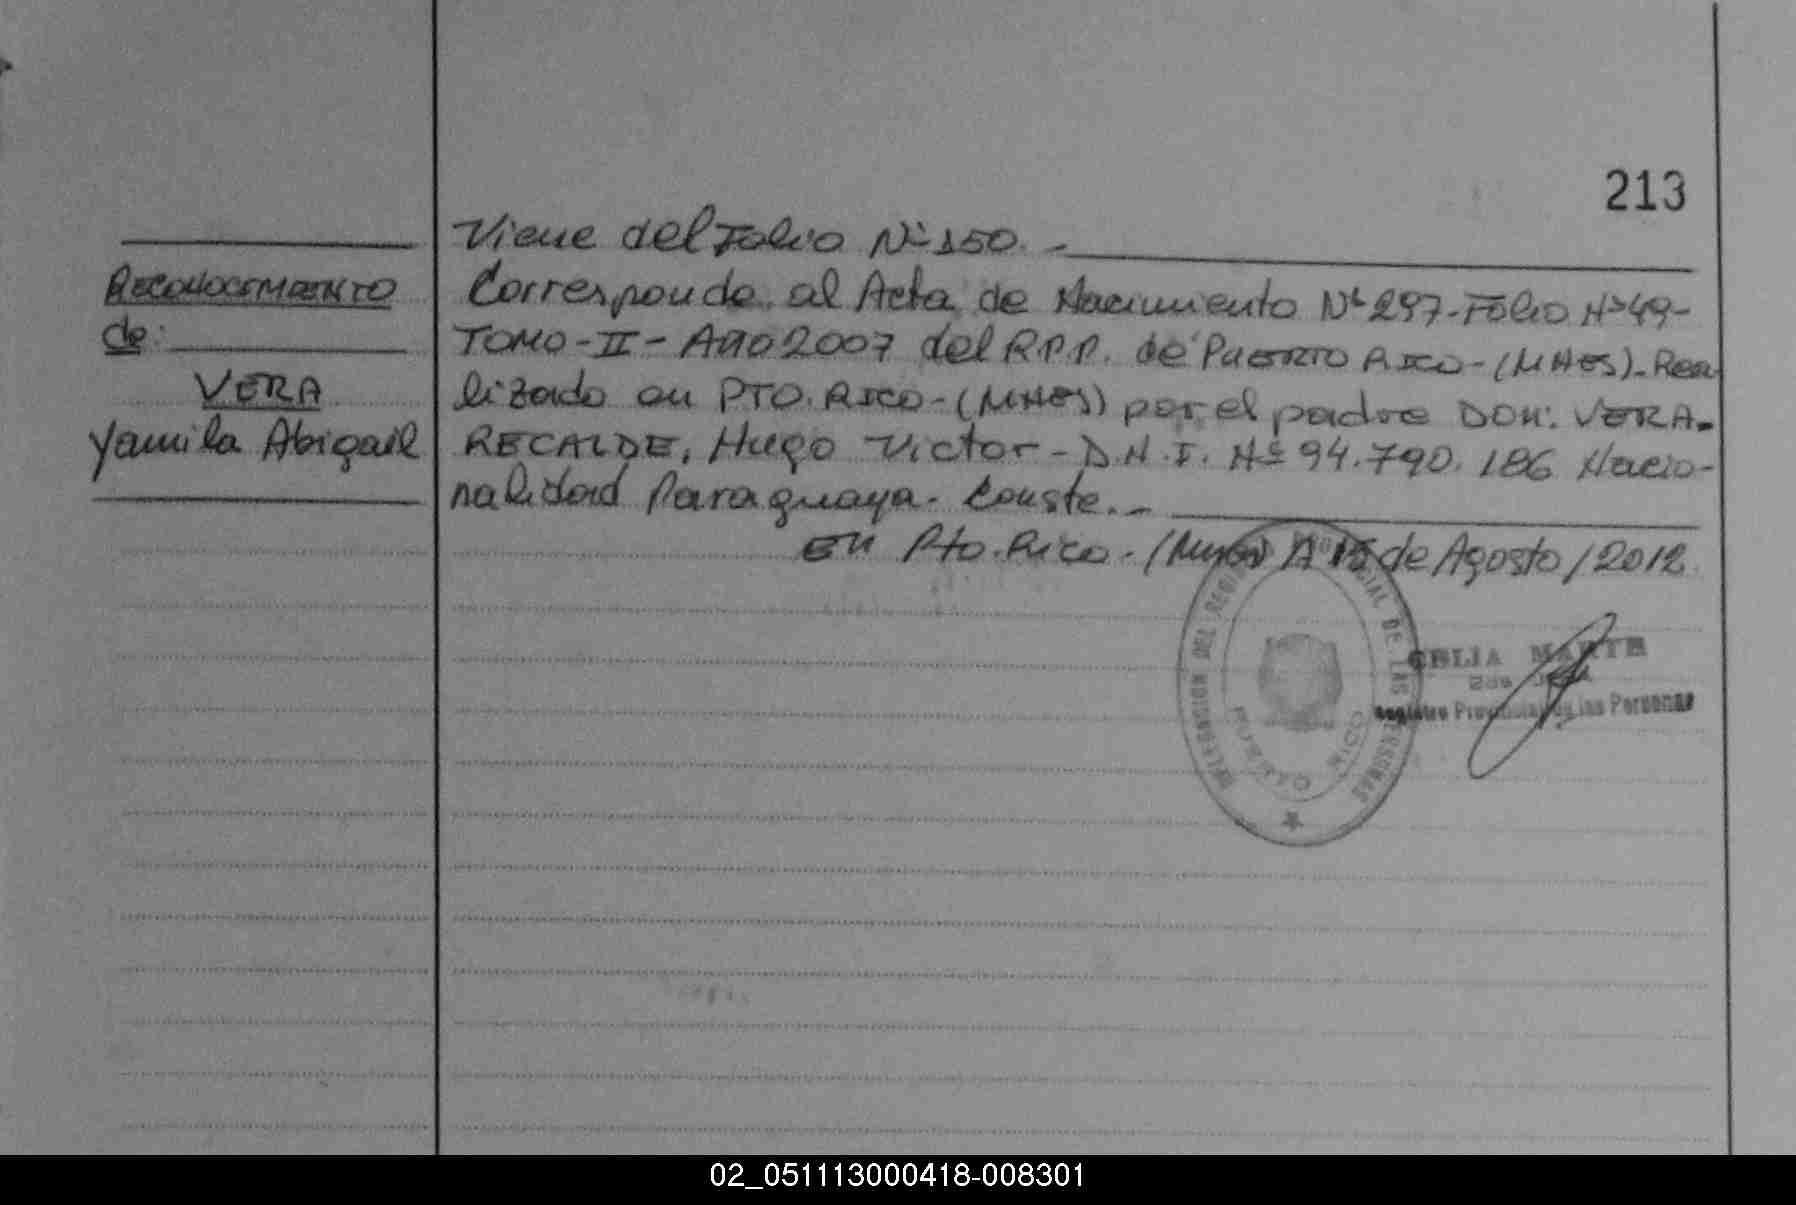 213
Viene del Folio Nº 150. -
RECONOCIMIENTO
de:
VERA
Yamila Abigail
Corresponde al Acta de Nacimiento Nº 297-Folio Nº 49-
TOMO-II- AÑO 2007 del R.P.P. de PUERTO RICO-(MNES)-Rea
lizado en PTO. RICO-(MNES) por el padre DON: VERA-
RECALDE, Hugo Victor - D.N.I. Nº 94.790.186 Nacio-
nalidad Paraguaya. Conste. -
En Pto. Rico.-(Mnes) A 15 de Agosto/2012
DELEGACION DEL REGISTRO PROVINCIAL DE LAS PERSONAS
PUERTO RICO
CELIA
Registro Provincial de las Personas
02_051113000418-008301